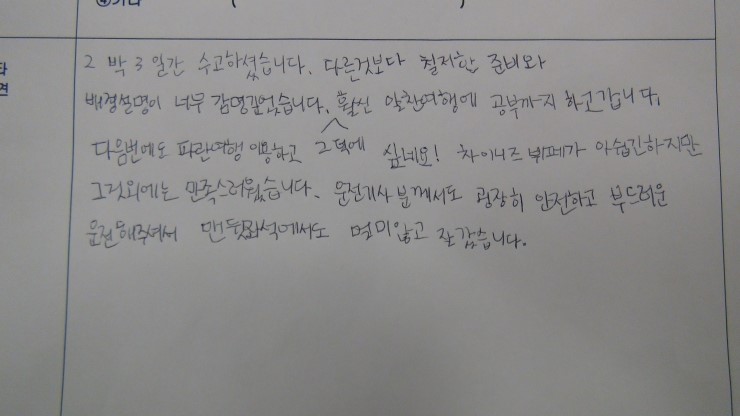 ④기타 (                    )
타
견
2 박 3 일간 수고하셨습니다. 다른것보다 철저한 준비와
배경설명이 너무 감명깊었습니다. 훨씬 알찬여행에 공부까지 하고갑니다.
다음번에도 파란여행 이용하고 그덕에 싶네요! 차이니즈 뷔페가 아쉽긴하지만
그것외에는 만족스러웠습니다. 운전기사 분께서도 굉장히 안전하고 부드러운
운전해주셔서 맨뒷좌석에서도 멀미않고 잘갔습니다.